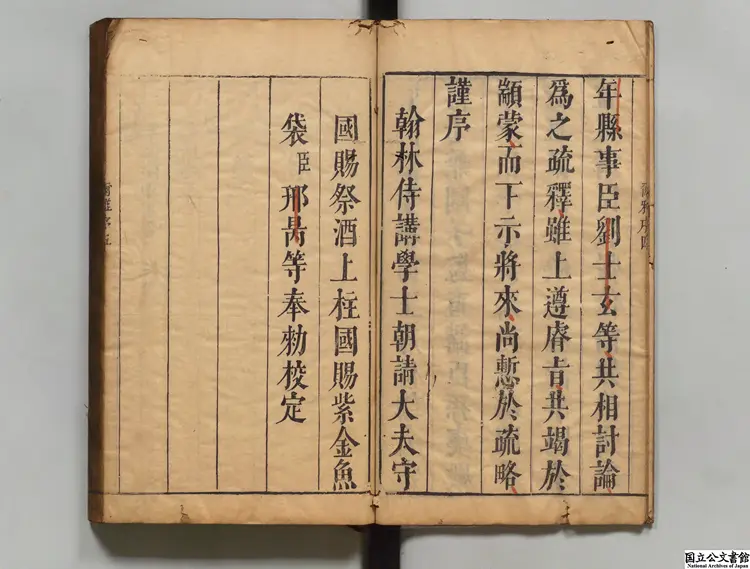 爾雅序四
年縣事臣劉士玄等共相討論
爲之疏釋雖上遵睿旨共竭於
顓蒙而下示將來尚慙於疏略
謹序
翰林侍講學士朝請大夫守
國賜祭酒上柱國賜紫金魚
袋臣邢昺等奉勑校定
爾雅序五
国立公文書館
National Archives of Japan